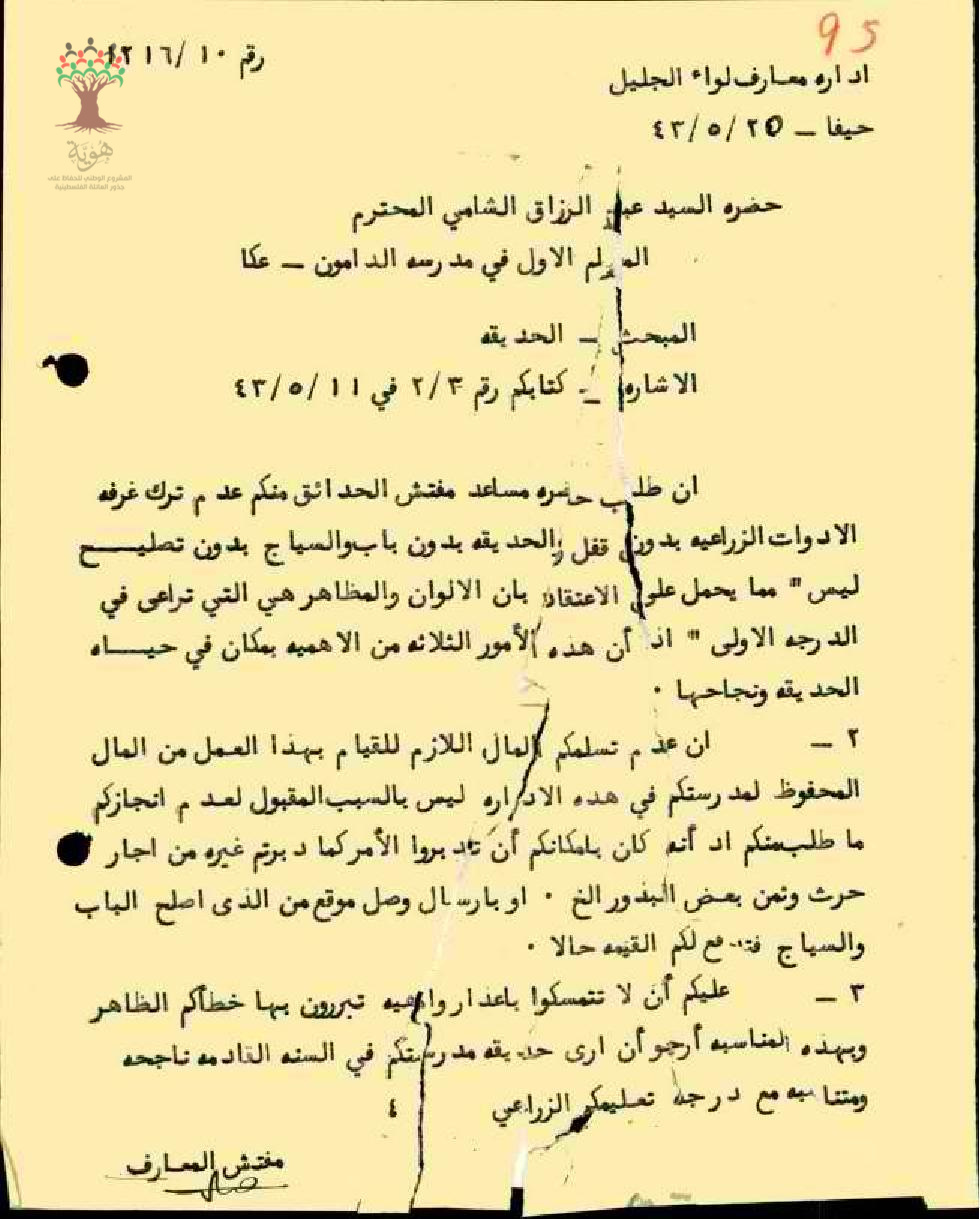 95
رقم ١٠/ ٤٢١٦
اداره معارف لواء الجليل
حيفا – ٢٥/ ٥/ ٤٣
هُوِيَّة
المشروع الوطني للحفاظ على
جذور العائلة الفلسطينية
حضره السيد عبد الرزاق الشامي المحترم
المعلم الاول في مدرسه الدامون – عكا
المبحث – الحديقه
الاشاره – كتابكم رقم ٢/٣ في ١١/ ٥/ ٤٣
ان طلب حضره مساعد مفتش الحدائق منكم عدم ترك غرفه
الادوات الزراعيه بدون قفل والحديقه بدون باب والسياج بدون تصليح
ليس " مما يحمل على الاعتقاد بان الالوان والمظاهر هي التي تراعى في
الدرجه الاولى " اذ أن هذه الأمور الثلاثه من الاهميه بمكان في حياه
الحديقه ونجاحها ٠
٢ – ان عدم تسلمكم المال اللازم للقيام بهذا العمل من المال
المحفوظ لمدرستكم في هذه الاداره ليس بالسبب المقبول لعدم انجازكم
ما طلب منكم اذ أنه كان بامكانكم أن تدبروا الأمر كما دبرتم غيره من اجار
حرث وثمن بعض البذور الخ ٠ او بارسال وصل موقع من الذى اصلح الباب
والسياج فتدفع لكم القيمه حالا ٠
٣ – عليكم أن لا تتمسكوا باعذار واهيه تبررون بها خطأكم الظاهر
وبهذه المناسبه أرجو أن ارى حديقه مدرستكم في السنه القادمه ناجحه
ومتناسبه مع درجة تعليمكم الزراعي ٤
مفتش المعارف